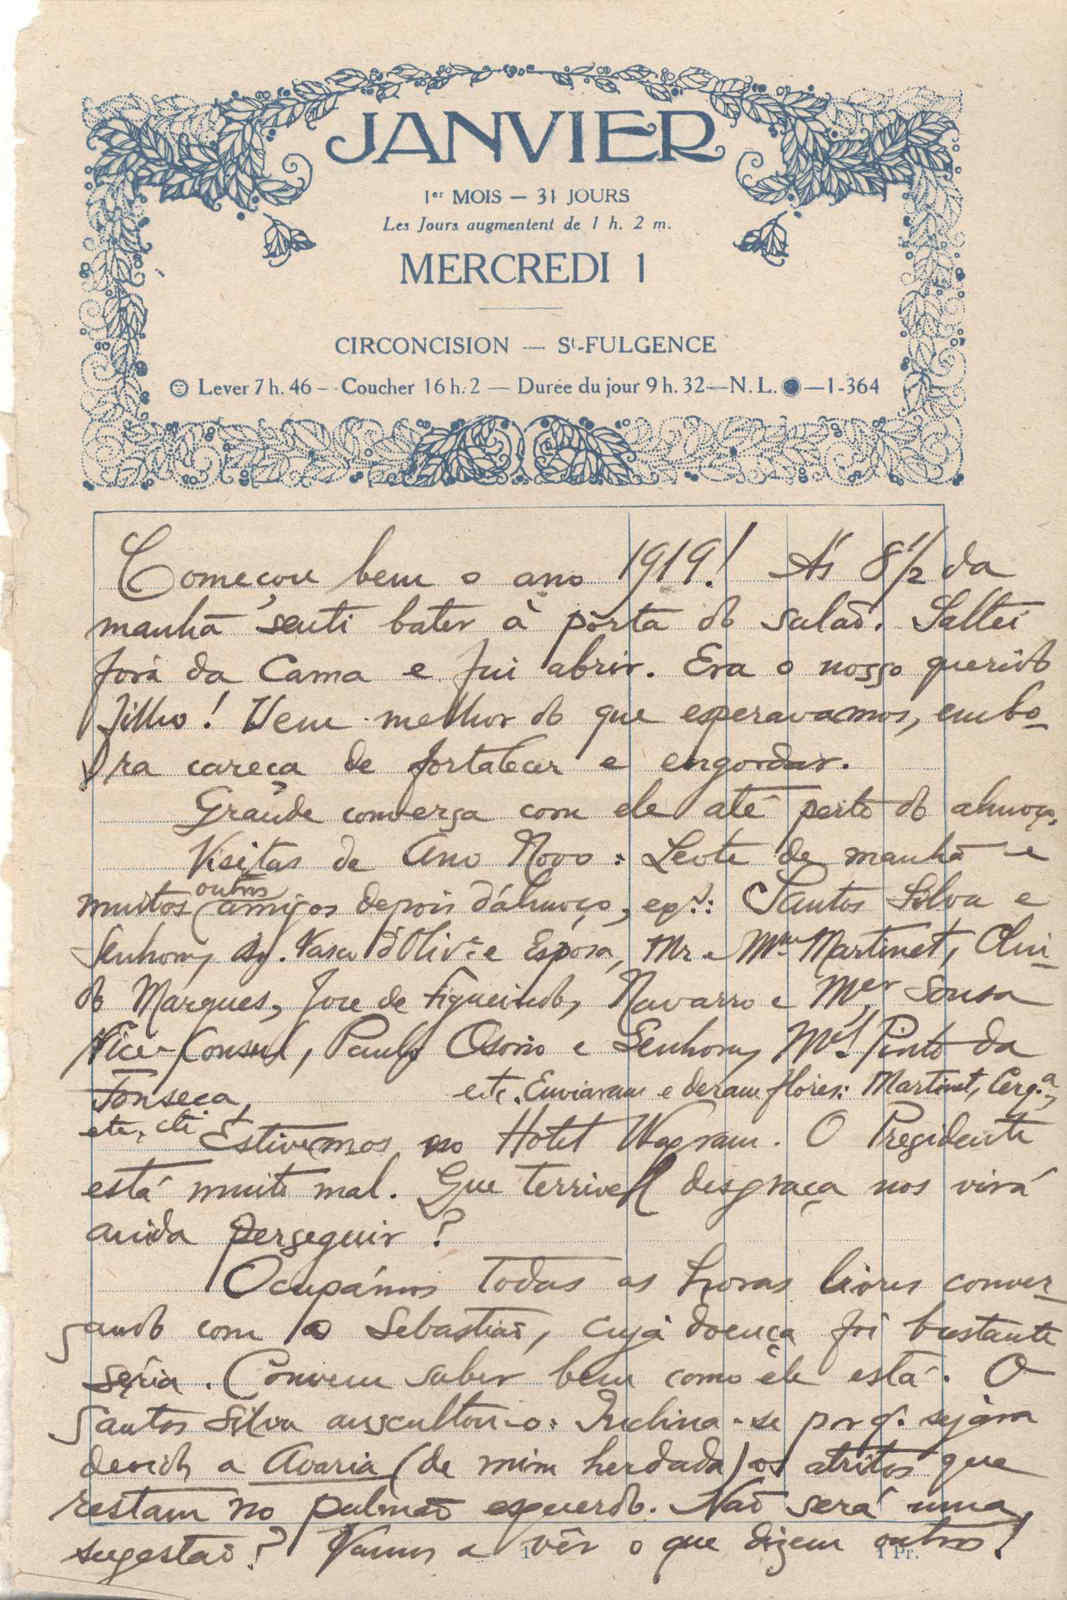 JANVIER
1er MOIS — 31 JOURS
Les Jours augmentent de 1 h. 2 m.
MERCREDI 1
CIRCONCISION — St-FULGENCE
Lever 7 h. 46 — Coucher 16 h. 2 — Durée du jour 9 h. 32 — N. L. — 1-364
Começou bem o ano 1919! Ás 8 1/2 da
manhã senti bater à pórta do salão. Saltei
fóra da Cama e fui abrir. Era o nosso querido
filho! Vem melhor do que esperavamos, embo-
ra careça de fortalecer e engordar.
Grande conversa com ele até perto do almoço.
Visitas de Ano Novo: Leote de manhã e
muitos outros amigos depois d'álmoço, Santos Silva e
Senhora, Vasco d'Oliv.ra e Espósa, Mr. e Mme Martinet,
do Marques, José de Figueiredo, Navarro e Mer Sousa
Vice-Consul, Paulo Osorio e Senhora, Mel Pinto da
Fonseca, etc. Enviaram e deram flores: Martinet, Cerq.a,
etc, etc.
Estivemos no Hotel Wagram. O Presidente
está muito mal. Que terrivel desgraça nos virá
ainda perseguir?
Ocupámos todas as horas livres conver-
sando com o Sebastião, cuja doença foi bastante
séria. Convem saber bem como êle está. O
Santos Silva auscultou-o: Inclina-se por q. sejam
devido a Avaria (de mim herdada) os atritos que
restam no pulmão esquerdo. Não será uma
sugestão? Vamos a vêr o que dizem outros!
1
1 Pr.